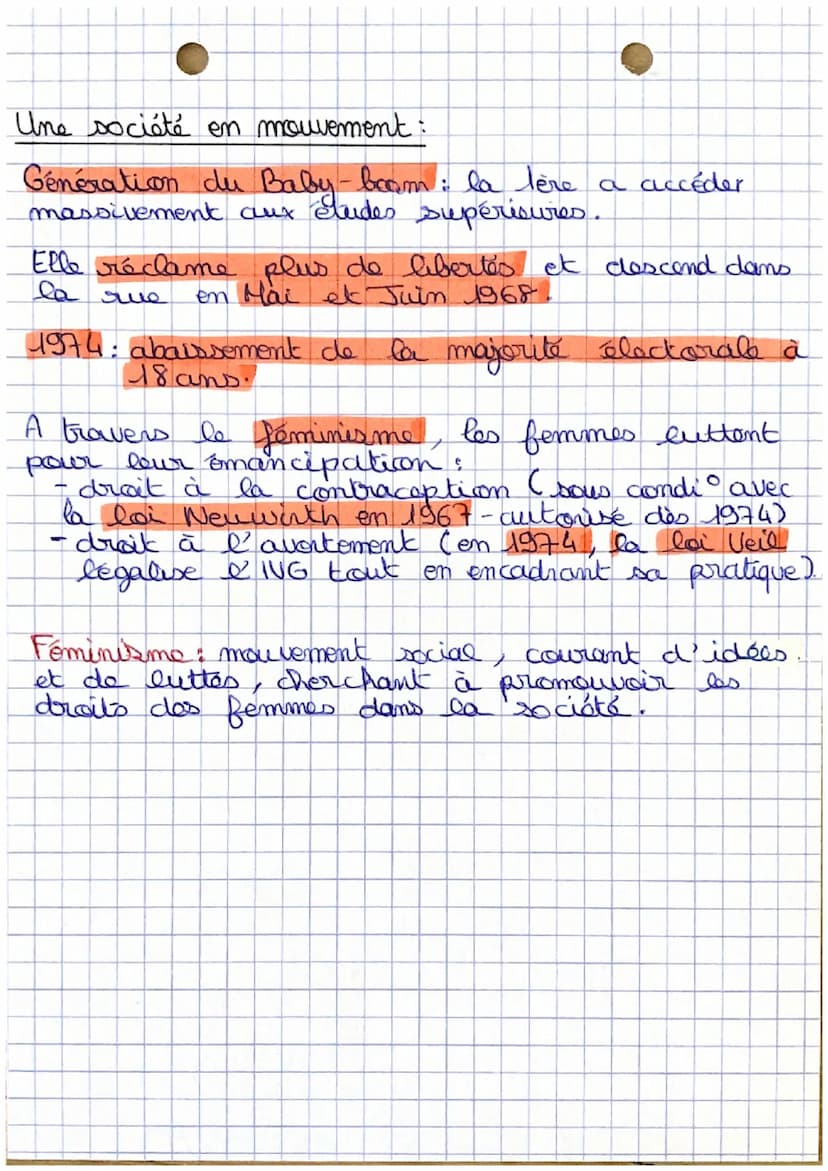 Une société en mouvement :
Génération du Baby-boom : la 1ère a accéder
massivement aux études supérieures.
Elle réclame plus de libertés et descend dans
la rue en Mai et Juin 1968.
1974 : abaissement de la majorité électorale à
18 ans.
A travers le féminisme, les femmes luttent
pour leur émancipation :
- droit à la contraception (sous condi° avec
la loi Neuwirth en 1967 - autorisé dès 1974)
- droit à l'avortement (en 1974, la loi Veil
légalise l'IVG tout en encadrant sa pratique).
Féminisme : mouvement social, courant d'idées
et de luttes, cherchant à promouvoir les
droits des femmes dans la société.